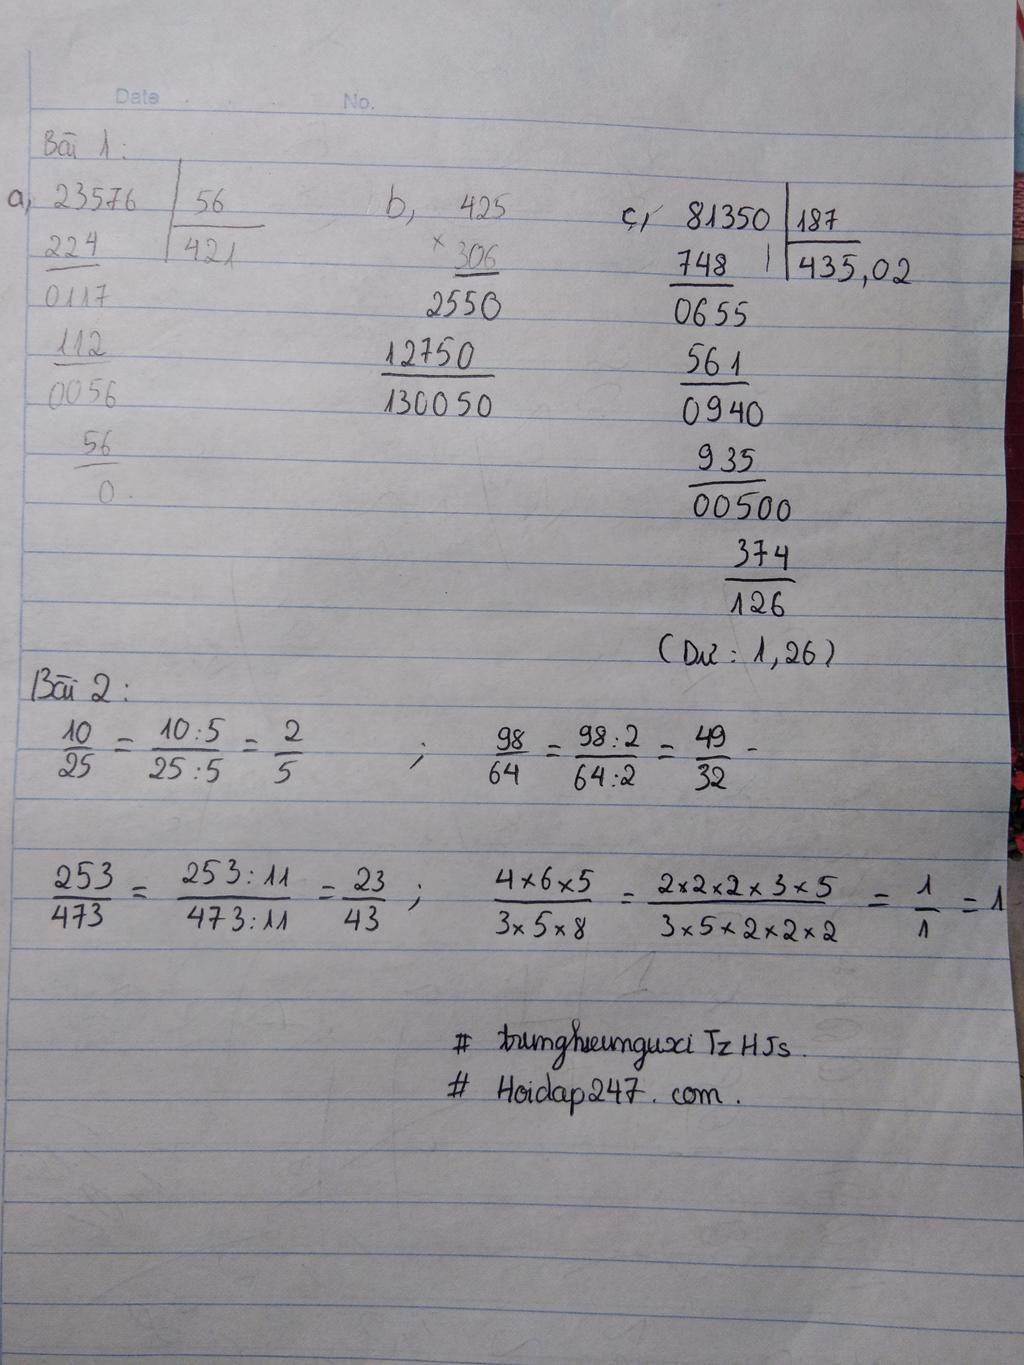 Date No.
Bài 1:
a, 23576 56
224 421
0117
112
0056
56
0
b, 425
× 306
2550
12750
130050
c, 81350 187
748 435,02
0655
561
0940
935
00500
374
126
(Dư: 1,26)
Bài 2:
10/25 = 10:5/25:5 = 2/5 ; 98/64 = 98:2/64:2 = 49/32
253/473 = 253:11/473:11 = 23/43 ; 4×6×5/3×5×8 = 2×2×2×3×5/3×5×2×2×2 = 1/1 = 1
#
# Hoidap247.com.